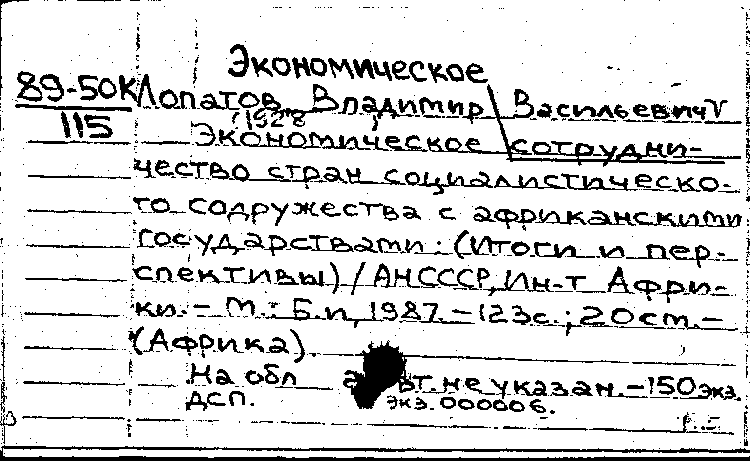 Экономическое
89-50К Лопатов, Владимир Васильевич
115 1928
Экономическое сотрудни-
чество стран социалистическо-
го содружества с африканскими
государствами: (Итоги и пер-
спективы) / АН СССР, Ин-т Афри-
ки. - М.: Б.и, 1987. - 123с.; 20 см. -
(Африка).
На обл авт. не указан. - 150 экз.
ДСП. экз. 000006.